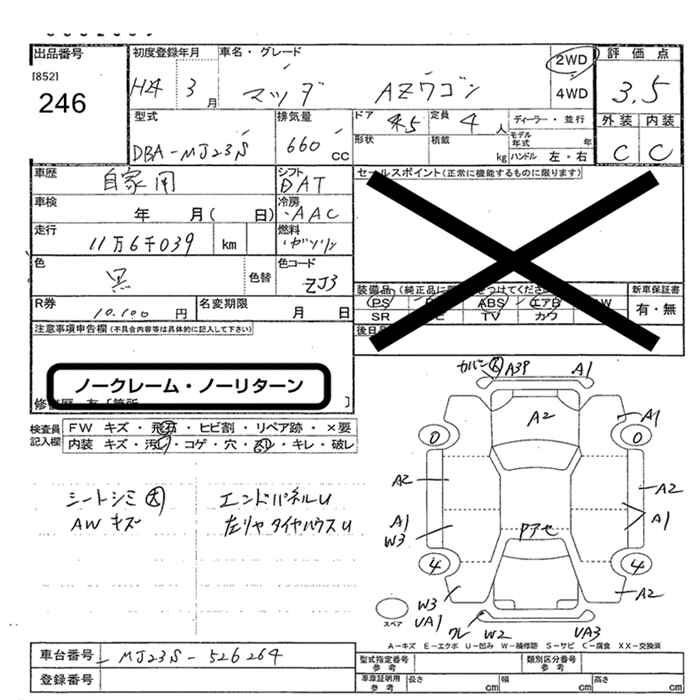 出品番号 初度登録年月 車名・グレード 2WD 評価点
[852] H24 3月 マツダ AZワゴン 4WD 3.5
246 型式 排気量 ドア 5 定員 4人 ディーラー・並行 外装 内装
DBA-MJ23S 660cc 形状 積載 kg モデル年式 年 ハンドル 左・右 C C
車歴 自家用 シフト DAT セールスポイント(正常に機能するものに限ります)
車検 年 月( 日) 冷房 AAC
走行 11万6千039 km 燃料 ガソリン
色 黒 色替 色コード ZJ3
装備品 (純正品に つけてくださ 新車保証書
R券 10.100円 名変期限 月 日 PS ABS エアB W 有・無
SR TV カワ
注意事項申告欄(不具合内容等は具体的に記入して下さい) 後日
ノークレーム・ノーリターン
カバー大 A3P A1
検査員記入欄 FW キズ・飛石・ヒビ割・リペア跡・×要
内装 キズ・汚レ・コゲ・穴・スレ・キレ・破レ
A2 A1
0 0
シートシミ大 エンドパネルU
AWキズ 左リヤタイヤハウスU
A2 A2
A1 A1
W3 Pアセ
4 4
W3 A2
UA1
スペア クレ W2 UA3
A-キズ E-エクボ U-凹み W-補修跡 S-サビ C-腐食 XX-交換済
車台番号 MJ23S-526264 型式指定番号 参考 類別区分番号 参考
登録番号 車庫証明用 参考 長さ cm 幅 cm 高さ cm